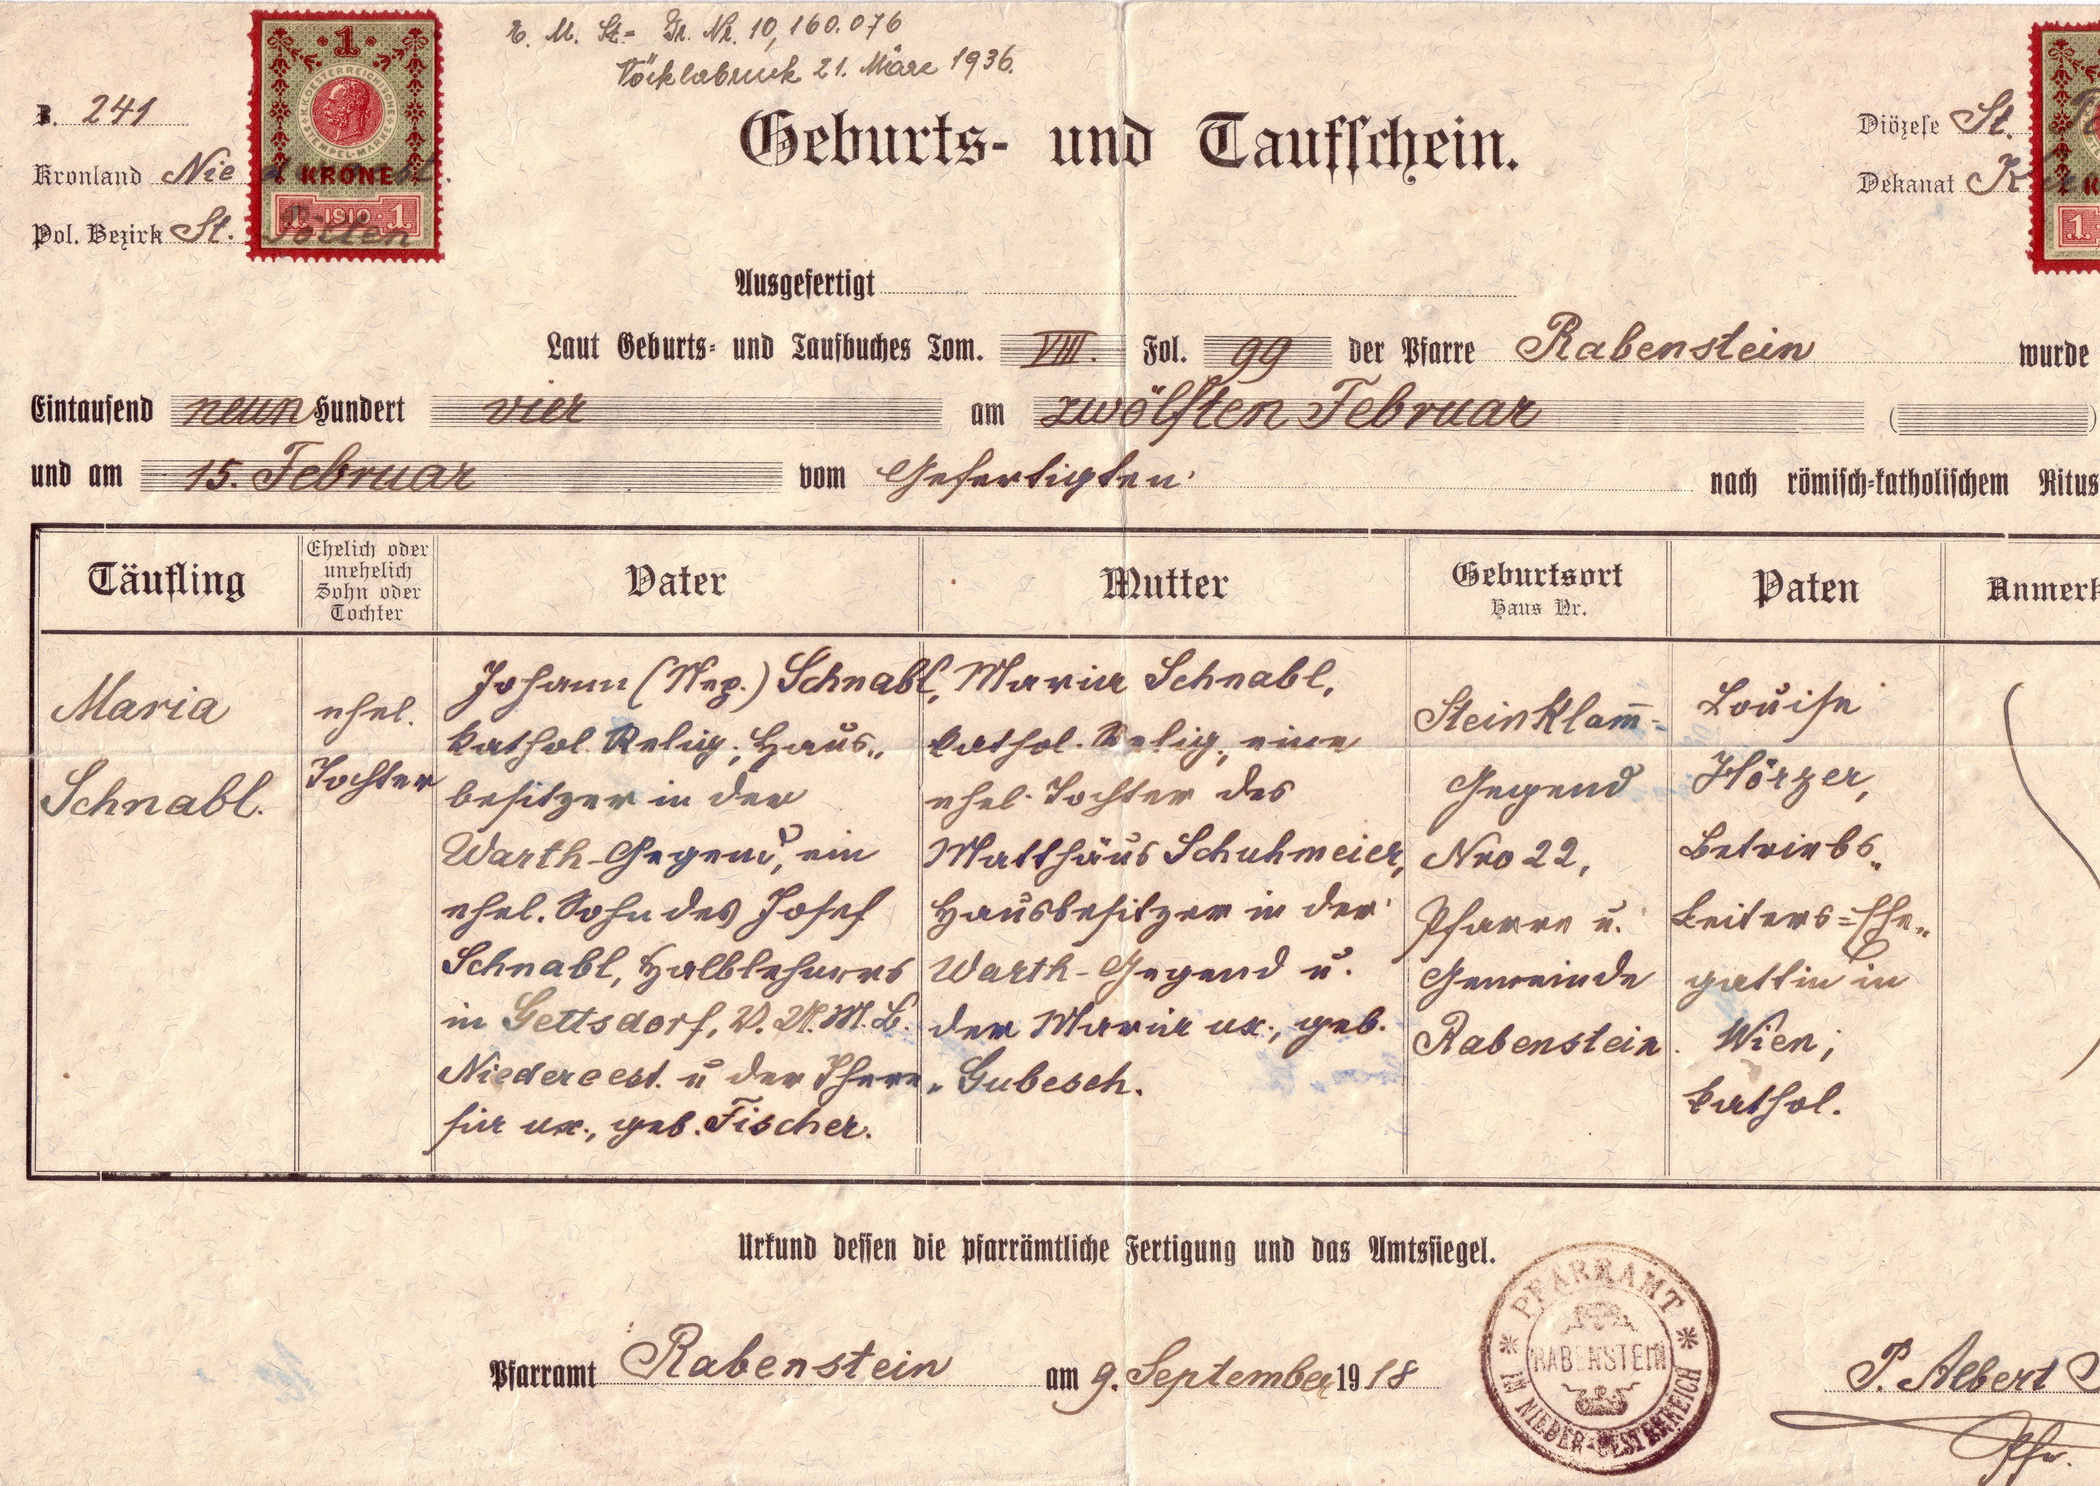 E. M. St.- Gr. Nr. 10,160.076
Vöcklabruck 21. März 1936.
1
K.K. OESTERREICHISCHE STEMPEL-MARKE
KRONE
1 · 1910 · 1
Z. 241
Kronland Niederöst.
Pol. Bezirk St. Pölten
Geburts- und Taufschein.
Diözese St.
Dekanat
1
Ausgefertigt
Laut Geburts- und Taufbuches Tom. VIII. Fol. 99 der Pfarre Rabenstein wurde
Eintausend neun Hundert vier am zwölften Februar ( )
und am 15. Februar vom Gefertigten nach römisch-katholischem Ritus
Täufling
Ehelich oder
unehelich
Sohn oder
Tochter
Vater
Mutter
Geburtsort
Haus Nr.
Paten
Anmerk
Maria
Schnabl.
ehel.
Tochter
Johann (Nep.) Schnabl,
kathol. Relig., Haus„
besitzer in der
Warth-Gegend, ein
ehel. Sohn des Josef
Schnabl, Halblehners
in Gettsdorf, V. U. M. B.
Niederoest. u der There„
sia ux., geb. Fischer.
Maria Schnabl,
kathol. Relig., eine
ehel. Tochter des
Matthäus Schuhmeier,
Hausbesitzer in der
Warth-Gegend u.
der Maria ux., geb.
Gubesch.
Steinklam̄-
Gegend
Nro 22,
Pfarre u.
Gemeinde
Rabenstein.
Louise
Hörzer,
Betriebs„
Leiters-Ehe„
gattin in
Wien;
kathol.
Urkund dessen die pfarrämtliche Fertigung und das Amtssiegel.
Pfarramt Rabenstein am 9. September 1918
PFARRAMT
RABENSTEIN
IN NIEDER-OESTERREICH
P. Albert
Pfr.